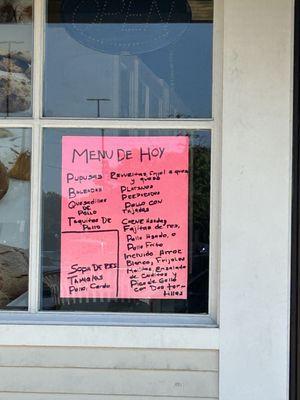 OPEN
MENU DE HOY
PUPUSAS REVUELTAS, Frijol a queso
y queso
BALEADAS
Quesadillas
DE
Pollo
Taquitos De
Pollo
SOPA DE RES
TAMALES
Pollo, Cerdo
PLATANOS
POLLO CON
TAJADAS
CARNE ASADAS
Fajitas de res,
Pollo Asado, o
Pollo Frito
Incluido Arroz
Blanco, Frijoles
Ensalada
y
Pico de Gallo
con Dos tor-
tillas